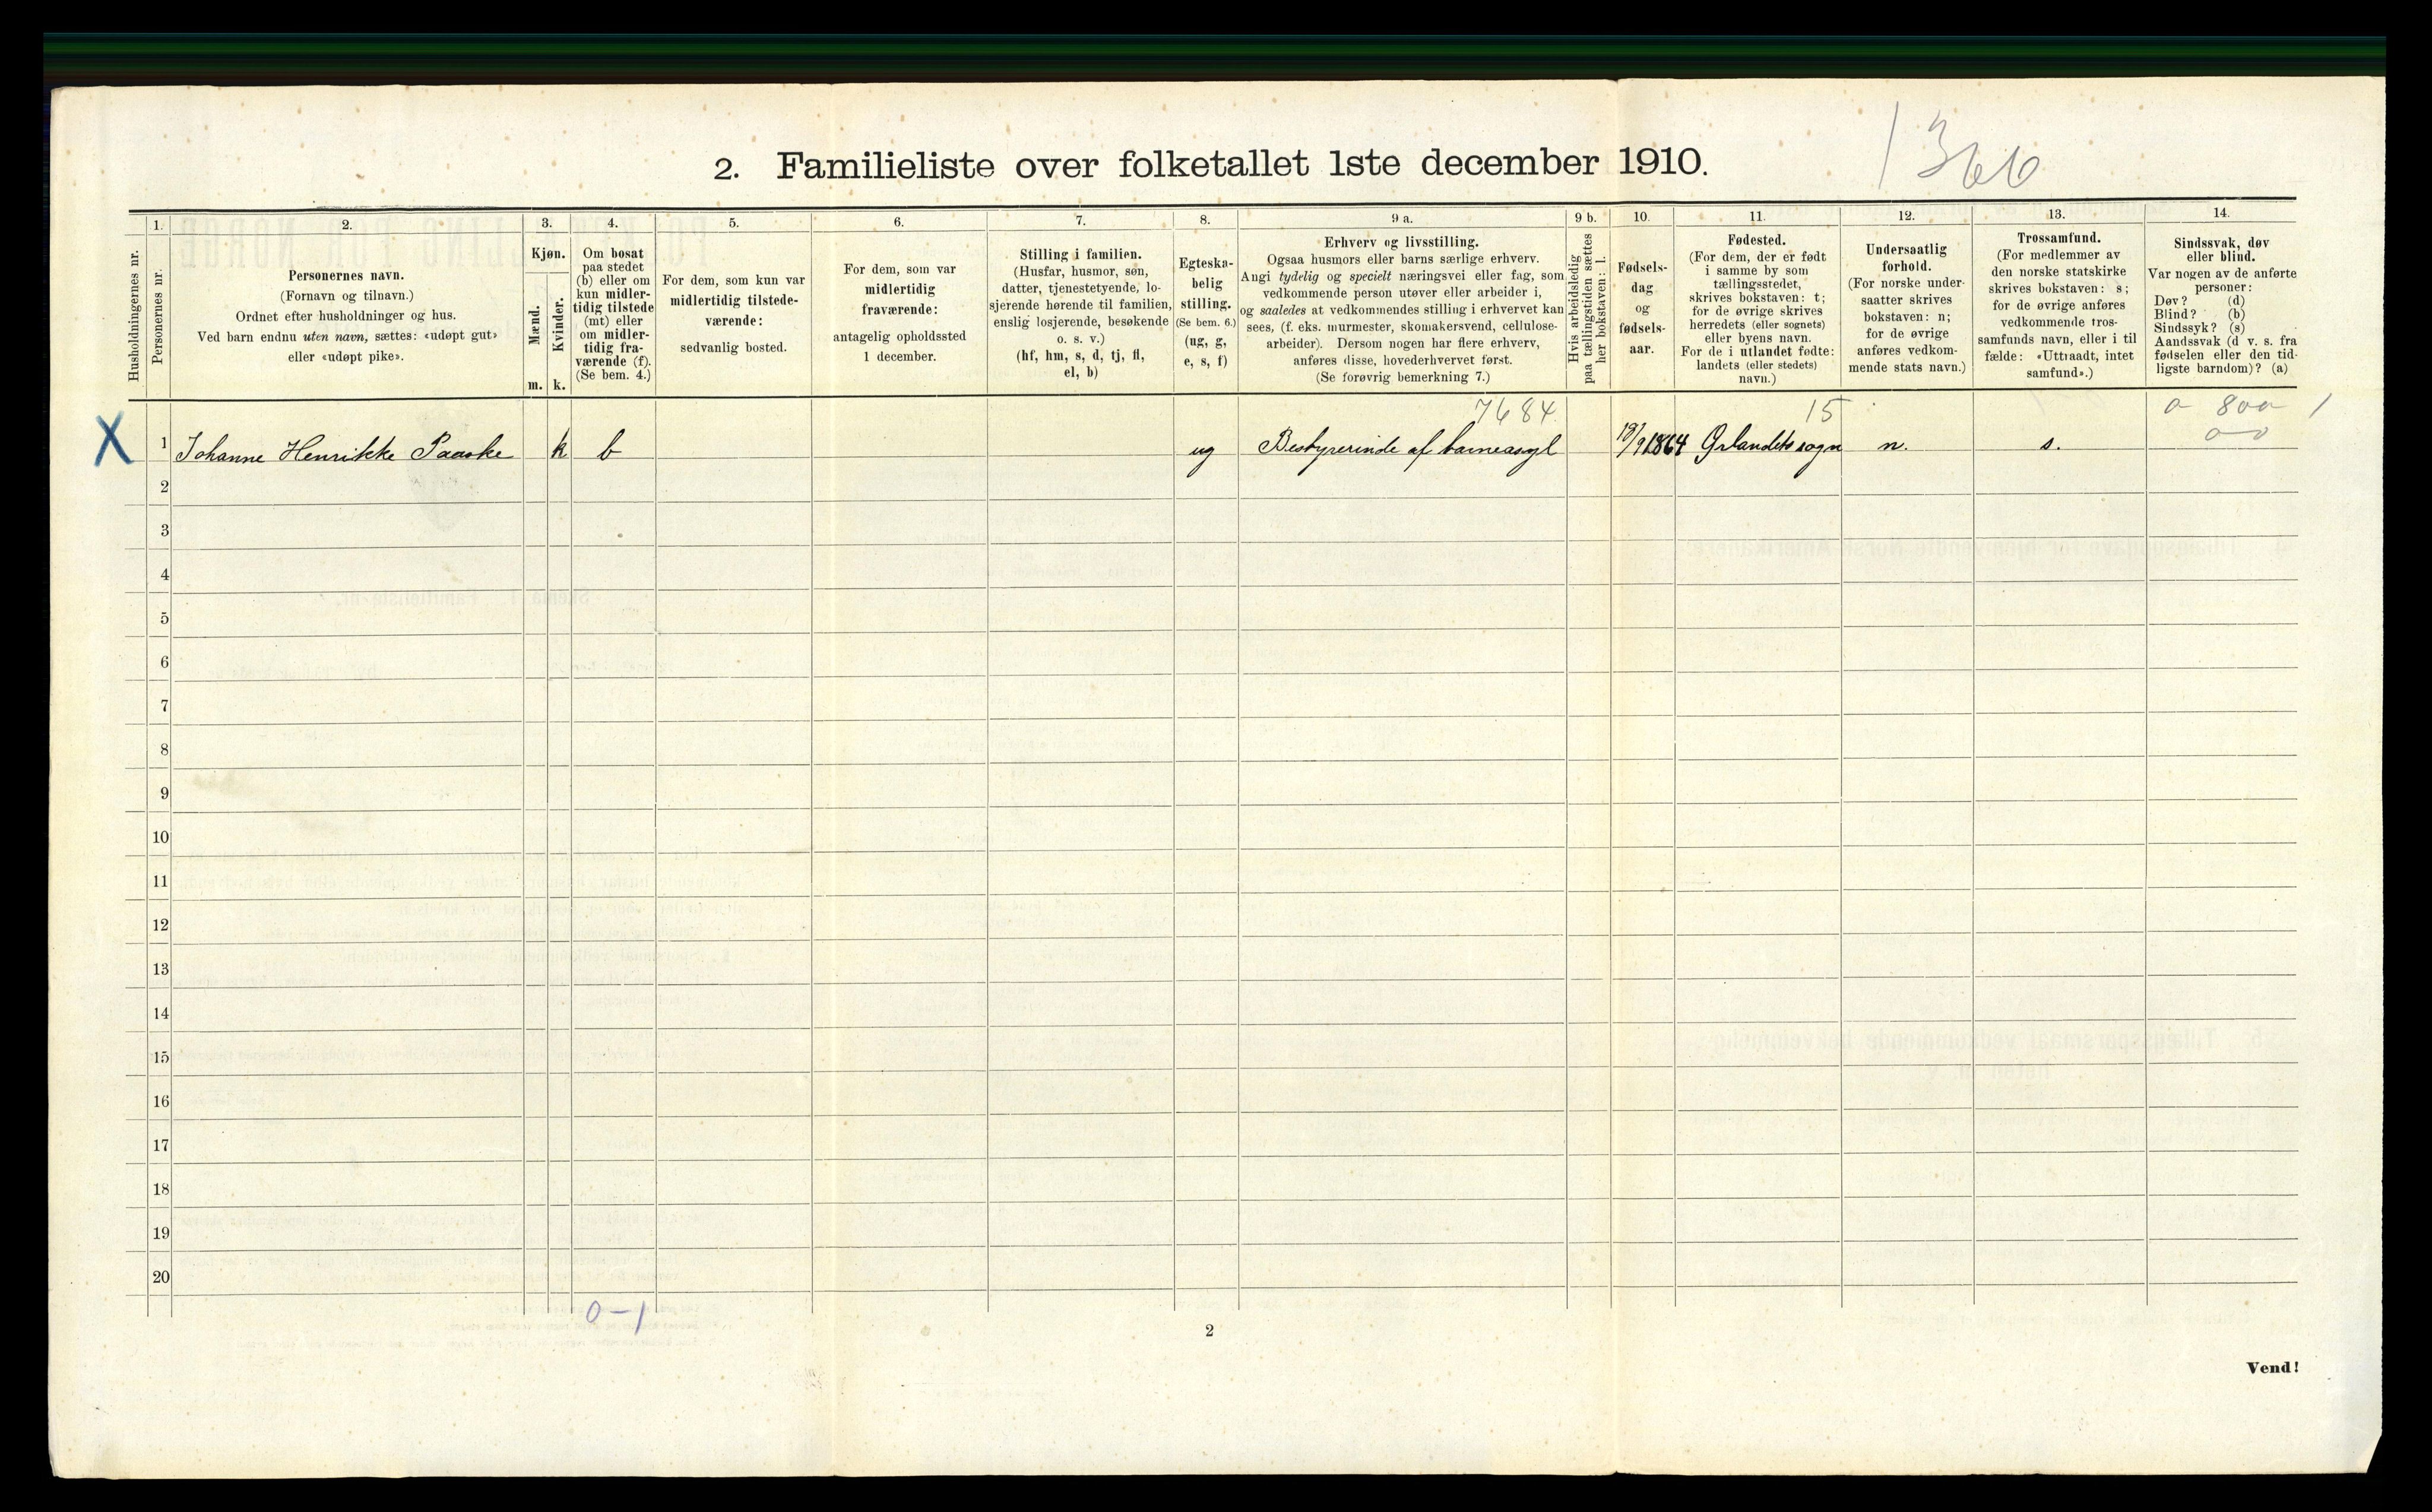 1366
2. Familieliste over folketallet 1ste december 1910.
Husholdningernes nr.
1.
Personernes nr.
2.
Personernes navn.
(Fornavn og tilnavn.)
Ordnet efter husholdninger og hus.
Ved barn endnu uten navn, sættes: «udøpt gut»
eller «udøpt pike».
3.
Kjøn.
Mænd.
Kvinder.
m. k.
4.
Om bosat
paa stedet
(b) eller om
kun midler-
tidig tilstede
(mt) eller
om midler-
tidig fra-
værende (f).
(Se bem. 4.)
5.
For dem, som kun var
midlertidig tilstede-
værende:
sedvanlig bosted.
6.
For dem, som var
midlertidig
fraværende:
antagelig opholdssted
1 december.
7.
Stilling i familien.
(Husfar, husmor, søn,
datter, tjenestetyende, lo-
sjerende hørende til familien,
enslig losjerende, besøkende
o. s. v.)
(hf, hm, s, d, tj, fl,
el, b)
8.
Egteska-
belig
stilling.
(Se bem. 6.)
(ug, g,
e, s, f)
9 a.
Erhverv og livsstilling.
Ogsaa husmors eller barns særlige erhverv.
Angi tydelig og specielt næringsvei eller fag, som
vedkommende person utøver eller arbeider i,
og saaledes at vedkommendes stilling i erhvervet kan
sees, (f. eks. murmester, skomakersvend, cellulose-
arbeider). Dersom nogen har flere erhverv,
anføres disse, hovederhvervet først.
(Se forøvrig bemerkning 7.)
9 b.
Hvis arbeidsledig
paa tællingstiden sættes
her bokstaven: l.
10.
Fødsels-
dag
og
fødsels-
aar.
11.
Fødested.
(For dem, der er født
i samme by som
tællingsstedet,
skrives bokstaven: t;
for de øvrige skrives
herredets (eller sognets)
eller byens navn.
For de i utlandet fødte:
landets (eller stedets)
navn.)
12.
Undersaatlig
forhold.
(For norske under-
saatter skrives
bokstaven: n;
for de øvrige
anføres vedkom-
mende stats navn.)
13.
Trossamfund.
(For medlemmer av
den norske statskirke
skrives bokstaven: s;
for de øvrige anføres
vedkommende tros-
samfunds navn, eller i til
fælde: «Uttraadt, intet
samfund».)
14.
Sindssvak, døv
eller blind.
Var nogen av de anførte
personer:
Døv? (d)
Blind? (b)
Sindssyk? (s)
Aandssvak (d v. s. fra
fødselen eller den tid-
ligste barndom)? (a)
7684 15 0 800 1
X 1 Johanne Henrikke Paaske k b ug Bestyrerinde af barneasyl 1864 Ørlandets sogn n. s. 00
2
3
4
5
6
7
8
9
10
11
12
13
14
15
16
17
18
19
20
0-1
2
Vend!